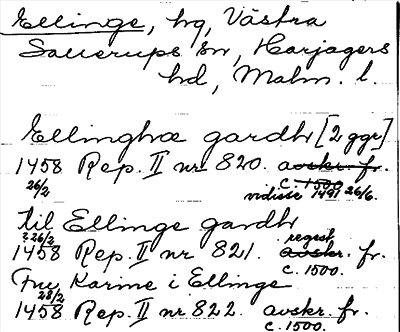 Ellinge, hg, Västra
Sallerups sn, Harjagers
hd, Malm. l.
Ellinghæ gardh [2 ggr]
1458 Rep. II nr 820. avskr. fr.
26/2 c. 1500
vidisse 1491 26/6.
til Ellinge gardh
? 26/2 regest
1458 Rep. II nr 821. avskr. fr.
c. 1500.
Fru Karine i Ellinge
28/2
1458 Rep. II nr 822. avskr. fr.
c. 1500.